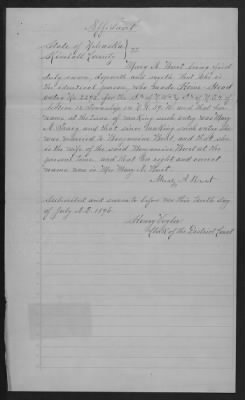 Affidavit
State of Nebraska
Kimball County } ss
Mary A. Hurst being first
duly sworn deposeth and saith that she is
the identical person who made Home-stead
entry No 2292, for the
Section 12 Township
name at the time of making such entry was Mary
A. and that since making such entry she
was married to Hurst and that she
is the wife of the said Hurst at the
present time, and that her right and correct
name now is Mrs Mary A. Hurst.
Mary A. Hurst
Subscribed and sworn to before me this tenth day
of July A.D. 1896.
Henry
Clerk of the District Court